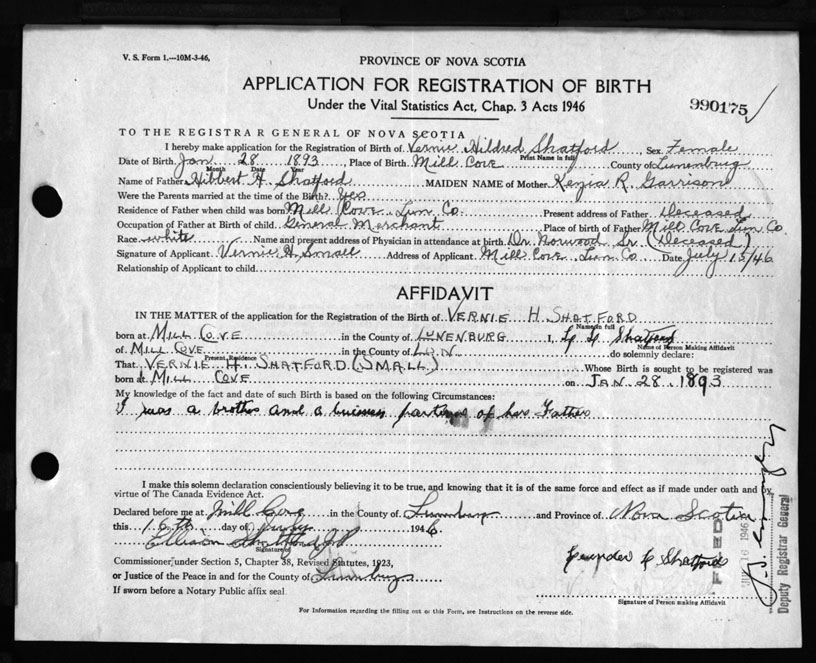 V. S. Form 1.—10M-3-46,
PROVINCE OF NOVA SCOTIA
APPLICATION FOR REGISTRATION OF BIRTH
Under the Vital Statistics Act, Chap. 3 Acts 1946
990175
TO THE REGISTRAR GENERAL OF NOVA SCOTIA
I hereby make application for the Registration of Birth of Vernie Hildred Shatford, Sex Female
Print Name in full
Date of Birth Jan 28 1893, Place of Birth Mill Cove County of Lunenburg
Month Date Year
Name of Father Hibbert H. Shatford MAIDEN NAME of Mother Kezia R. Garrison
Were the Parents married at the time of the Birth? Yes
Residence of Father when child was born Mill Cove Lun Co. Present address of Father Deceased
Occupation of Father at Birth of child General Merchant Place of birth of Father Mill Cove Lun Co.
Race white Name and present address of Physician in attendance at birth Dr. Norwood Sr. (Deceased)
Signature of Applicant Vernie H. Small Address of Applicant Mill Cove Lun Co Date July 15/46
Relationship of Applicant to child
AFFIDAVIT
IN THE MATTER of the application for the Registration of Birth of VERNIE H. SHATFORD
Name in full
born at MILL COVE in the County of LUNENBURG I, Shatford
Name of Person Making Affidavit
of MILL COVE in the County of LUN do solemnly declare:
Present Residence
That VERNIE H. SHATFORD (SMALL) Whose Birth is sought to be registered was
born at MILL COVE on JAN 28 1893
My knowledge of the fact and date of such Birth is based on the following Circumstances:
I was a brother and a business partner of her Father
I make this solemn declaration conscientiously believing it to be true, and knowing that it is of the same force and effect as if made under oath and by
virtue of The Canada Evidence Act.
Declared before me at Mill Cove in the County of Lunenburg and Province of Nova Scotia
this 16th day of July 1946
Ellison Shatford J.P.
Signature of
Commissioner under Section 5, Chapter 38, Revised Statutes, 1923,
or Justice of the Peace in and for the County of Lunenburg
If sworn before a Notary Public affix seal
Shatford
Signature of Person making Affidavit
For Information regarding the filling out of this Form, see Instructions on the reverse side.
FILED
16 1946
Deputy Registrar General